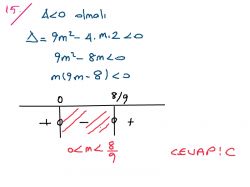 15/
Δ<0 olmalı
Δ = 9m² - 4.m.2 < 0
9m² - 8m < 0
m(9m - 8) < 0
0 8/9
+ - +
0 < m < 8/9
CEVAP: C